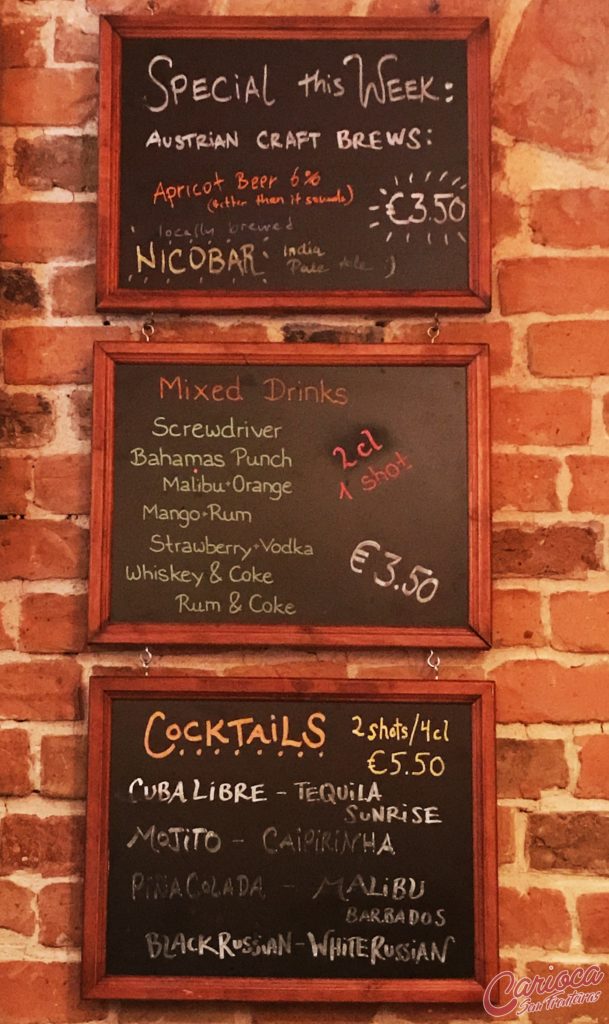 SPECIAL this WEEK:
AUSTRIAN CRAFT BREWS:
Apricot Beer 6%
(better than it sounds)
€3.50
locally brewed
NICOBAR: India
Pale Ale :)
Mixed Drinks
Screwdriver
Bahamas Punch
Malibu+Orange
Mango+Rum
Strawberry+Vodka
Whiskey & Coke
Rum & Coke
2cl
1 shot
€3.50
COCKTAILS
2shots/4cl
€5.50
CUBA LIBRE - TEQUILA
SUNRISE
MOJITO - CAIPIRINHA
PIÑA COLADA - MALIBU
BARBADOS
BLACK RUSSIAN - WHITE RUSSIAN
Carioca
Sem Fronteiras